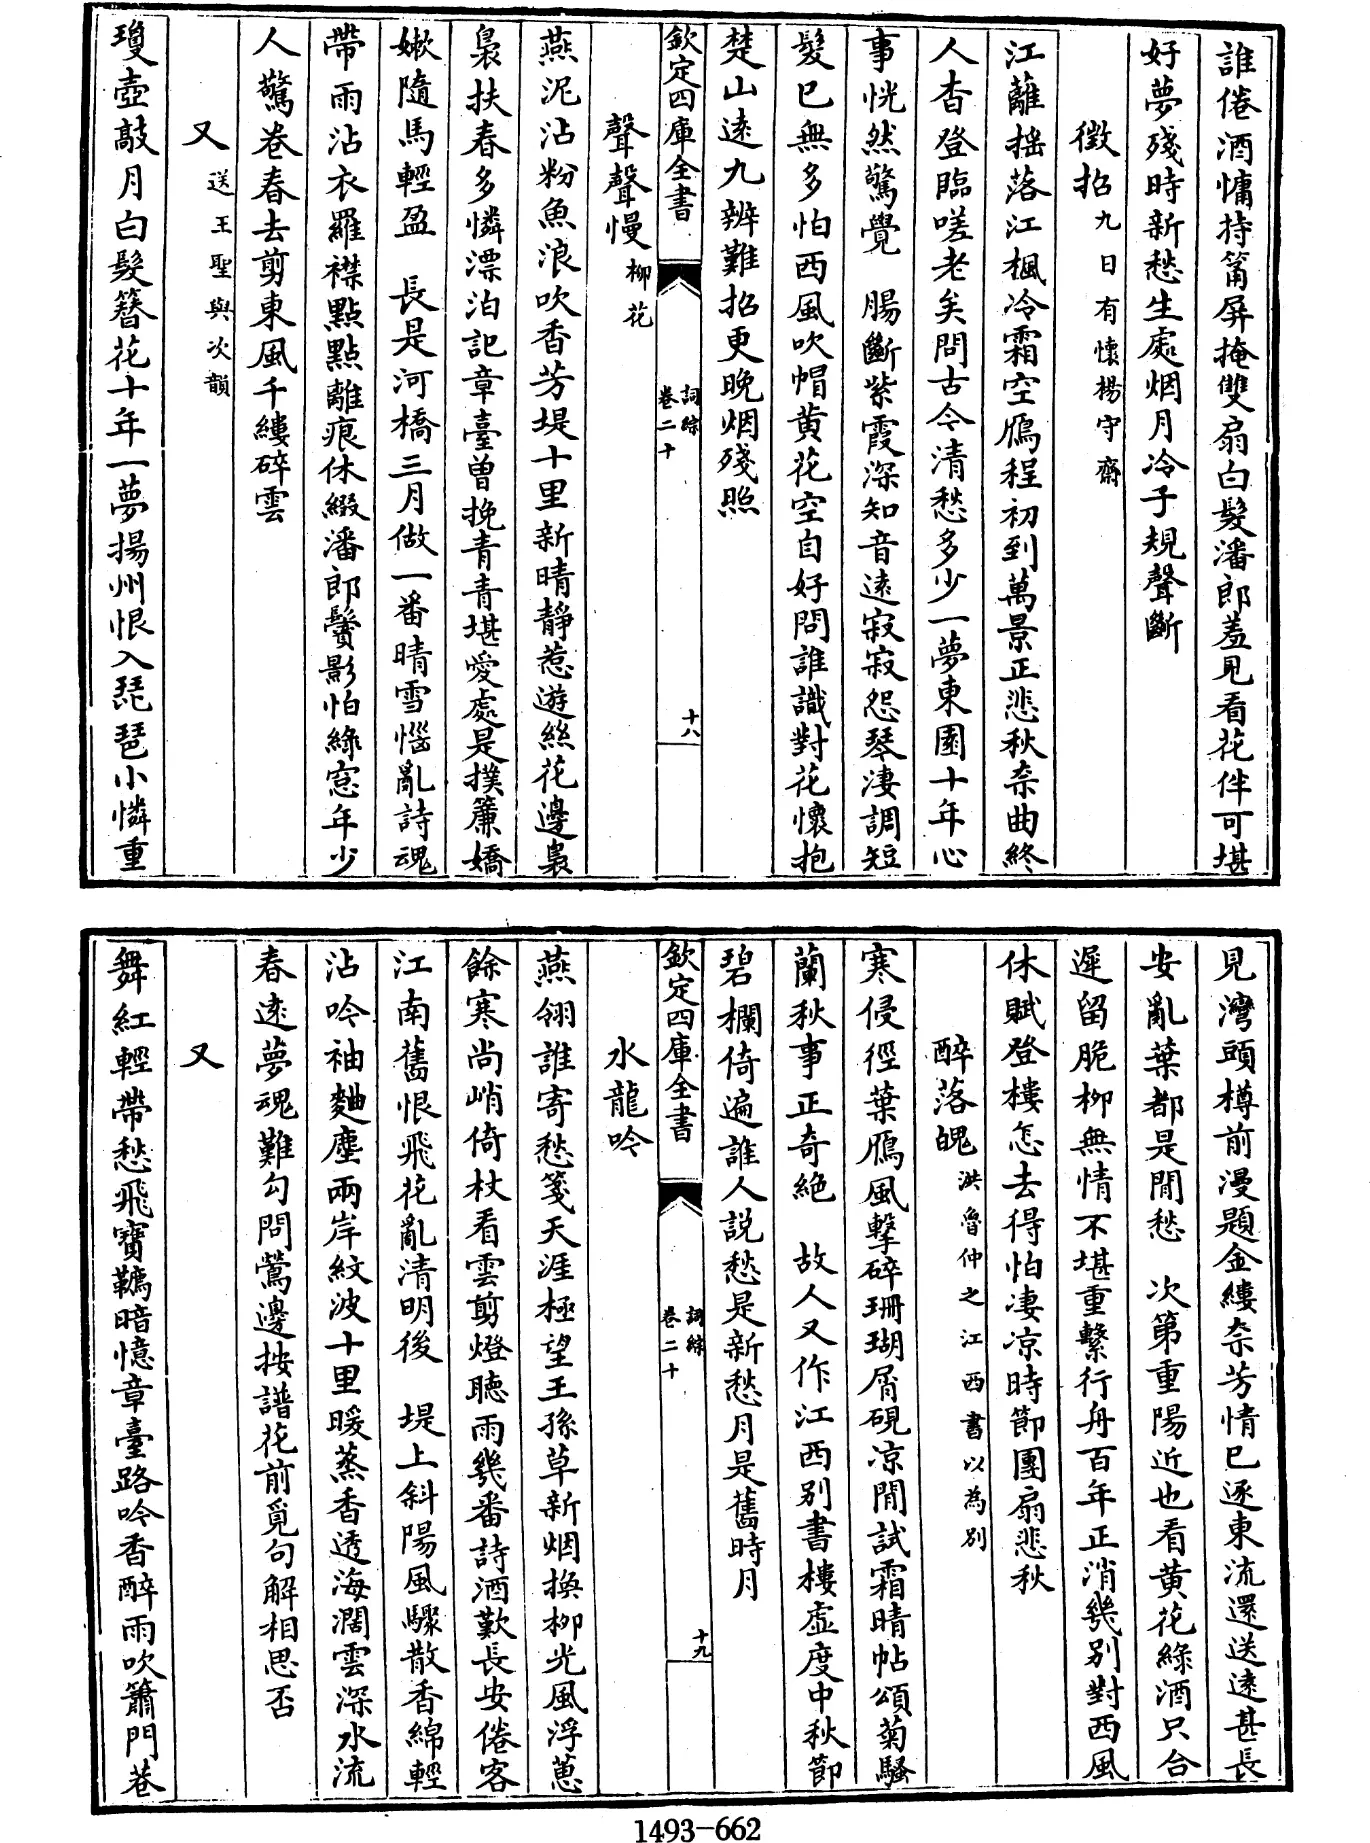 誰倦酒慵持篇屏掩雙扇白髮潘郎羞見看花伴可堪
好夢殘時新愁生處烟月冷子規聲斷
徵招九日有懷楊守齋
江蘺搖落江楓冷霜空鴈程初到萬景正悲秋奈曲終
人杳登臨嗟老矣問古今清愁多少一夢東園十年心
事恍然驚覺　腸斷紫霞深知音遠寂寂怨琴淒調短
髮已無多怕西風吹帽黄花空自好問誰識對花懷抱
楚山遠九辨難招更晚烟殘照
欽定四庫全書
詞綜
卷二十
十八
聲聲慢柳花
燕泥沾粉魚浪吹香芳堤十里新晴靜惹遊絲花邊裊
裊扶春多憐漂泊記章臺曾挽青青堪愛處是撲簾嬌
嫩隨馬輕盈　長是河橋三月做一番晴雪惱亂詩魂
帶雨沾衣羅襟點點離痕休綴潘郎鬢影怕綠窓年少
人驚卷春去剪東風千縷碎雲
又送王聖與次韻
瓊壺敲月白髮簪花十年一夢揚州恨入琵琶小憐重
見灣頭樽前漫題金縷奈芳情已逐東流還送遠甚長
安亂葉都是閒愁　次第重陽近也看黄花綠酒只合
遲留脆柳無情不堪重繫行舟百年正消幾别對西風
休賦登樓怎去得怕淒凉時節團扇悲秋
醉落魄洪魯仲之江西書以為别
寒侵徑葉鴈風擊碎珊瑚屑硯凉閒試霜晴帖頌菊騷
蘭秋事正奇絶　故人又作江西别書樓虚度中秋節
碧欄倚遍誰人説愁是新愁月是舊時月
欽定四庫全書
詞綜
卷二十
十九
水龍吟
燕翎誰寄愁箋天涯極望王孫草新烟換柳光風浮蕙
餘寒尚峭倚杖看雲剪燈聽雨幾番詩酒歎長安倦客
江南舊恨飛花亂清明後　堤上斜陽風驟散香綿輕
沾吟袖麯塵兩岸紋波十里暖蒸香透海濶雲深水流
春遠夢魂難勾問鶯邊按譜花前覓句解相思否
又
舞紅輕帶愁飛寶韉暗憶章臺路吟香醉雨吹簫門巷
1493-662